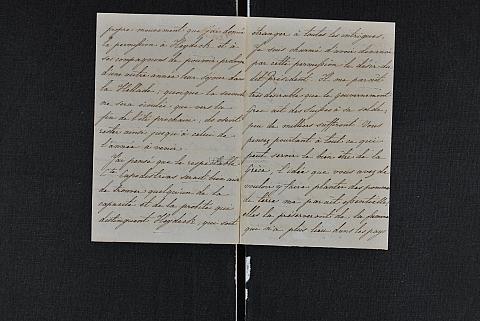 propre mouvement que j'ai donné
la permission à Heydeck et à
ses compagnons de pouvoir prolonger
d'une autre année leur séjour dans
la Hellade; quoique la seconde
ne sera écoulée que vers la
fin de l'été prochain, ils oseront
rester ainsi jusqu'à celui de
l'année à venir.
J'ai pensé que le respectable
Cte Capodistrias serait bien aise
de trouver quelqu'un de la
capacité et de la probité qui
distinguent Heydeck, qui soit
étranger à toutes les intrigues.
Je suis charmé d'avoir devancé
par cette permission le désir du
dit président. Il me paroit
très desirable que le gouvernement
Grec ait des troupes à sa solde,
peu de milliers suffiront. Vous
pensez pourtant à tout ce qui
peut servir le bien être de la
Grèce; l'idée que vous avez de
vouloir y faire planter des pommes
de terre me parait essentielle,
elles la préserveront de la famine
qui n'a plus lieu dans les pays